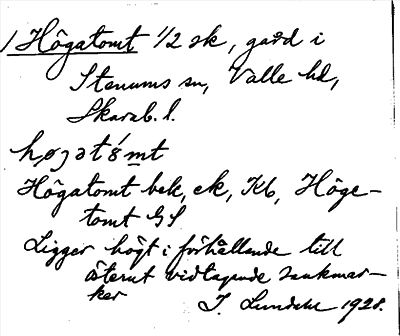 1 Högatomt 1/2 sk, gård i
Stenums sn, Valle hd,
Skarab. l.
högatómt
Högatomt bek, ek, Kb, Höge-
tomt GS.
Ligger högt i förhållande till
österut vidtagande sankmar-
ker
J. Lundahl 1928.